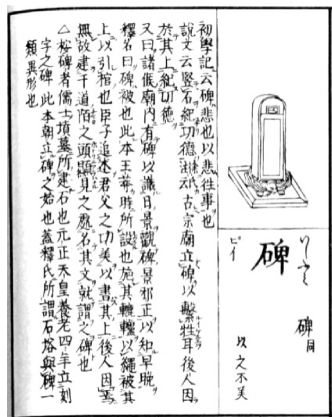 いしぶみ 碑同
碑 以之不美
ピイ
初學記云碑悲也以悲往事也
說文云竪石紀功德 古宗廟立碑以繫牲耳後人因
於其上紀功德
又曰諸侯廟内有碑以識日景觀碑景邪正以知早晩
釋名曰碑被也此本王莽時所設也施其轆轤以繩被其
上以引棺也臣子追述君父之功美以書其上後人因焉
無故建于道陌之頭顯見之處名其文就謂之碑也
△桉碑者儒士墳墓所建石也元正天皇養老四年立刻
字之碑此本朝立碑之始也蓋釋氏所謂石塔與碑一
類異形也